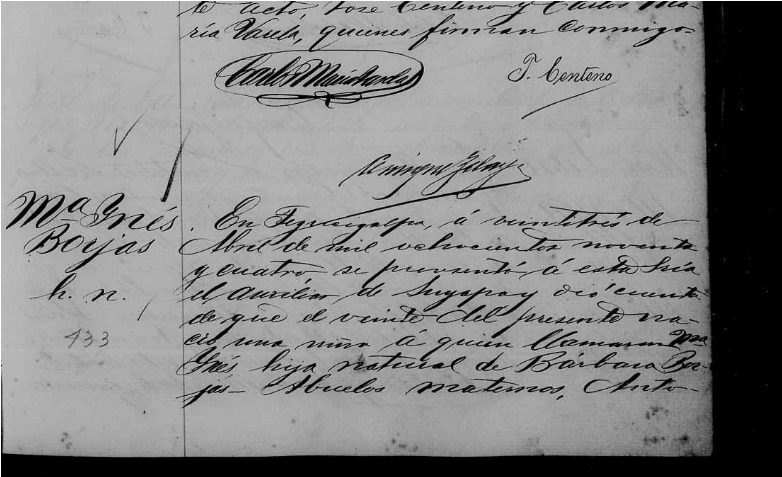 te acto, José Centeno y Carlos Ma-
ría Varela, quienes firman conmigo-
Carlos María Varela
J. Centeno
Enrique
Mª Inés
Borjas
h. n.
433
En Tegucigalpa, á veintitrés de
Abril de mil ochocientos noventa
y cuatro se presentó, á esta
el Auxiliar de Suyapa y dió cuenta
de que el veinte del presente na-
ció una niña á quien llamaran Mª
Inés hija natural de Bárbara Bor-
jas- Abuelos maternos, Anto-